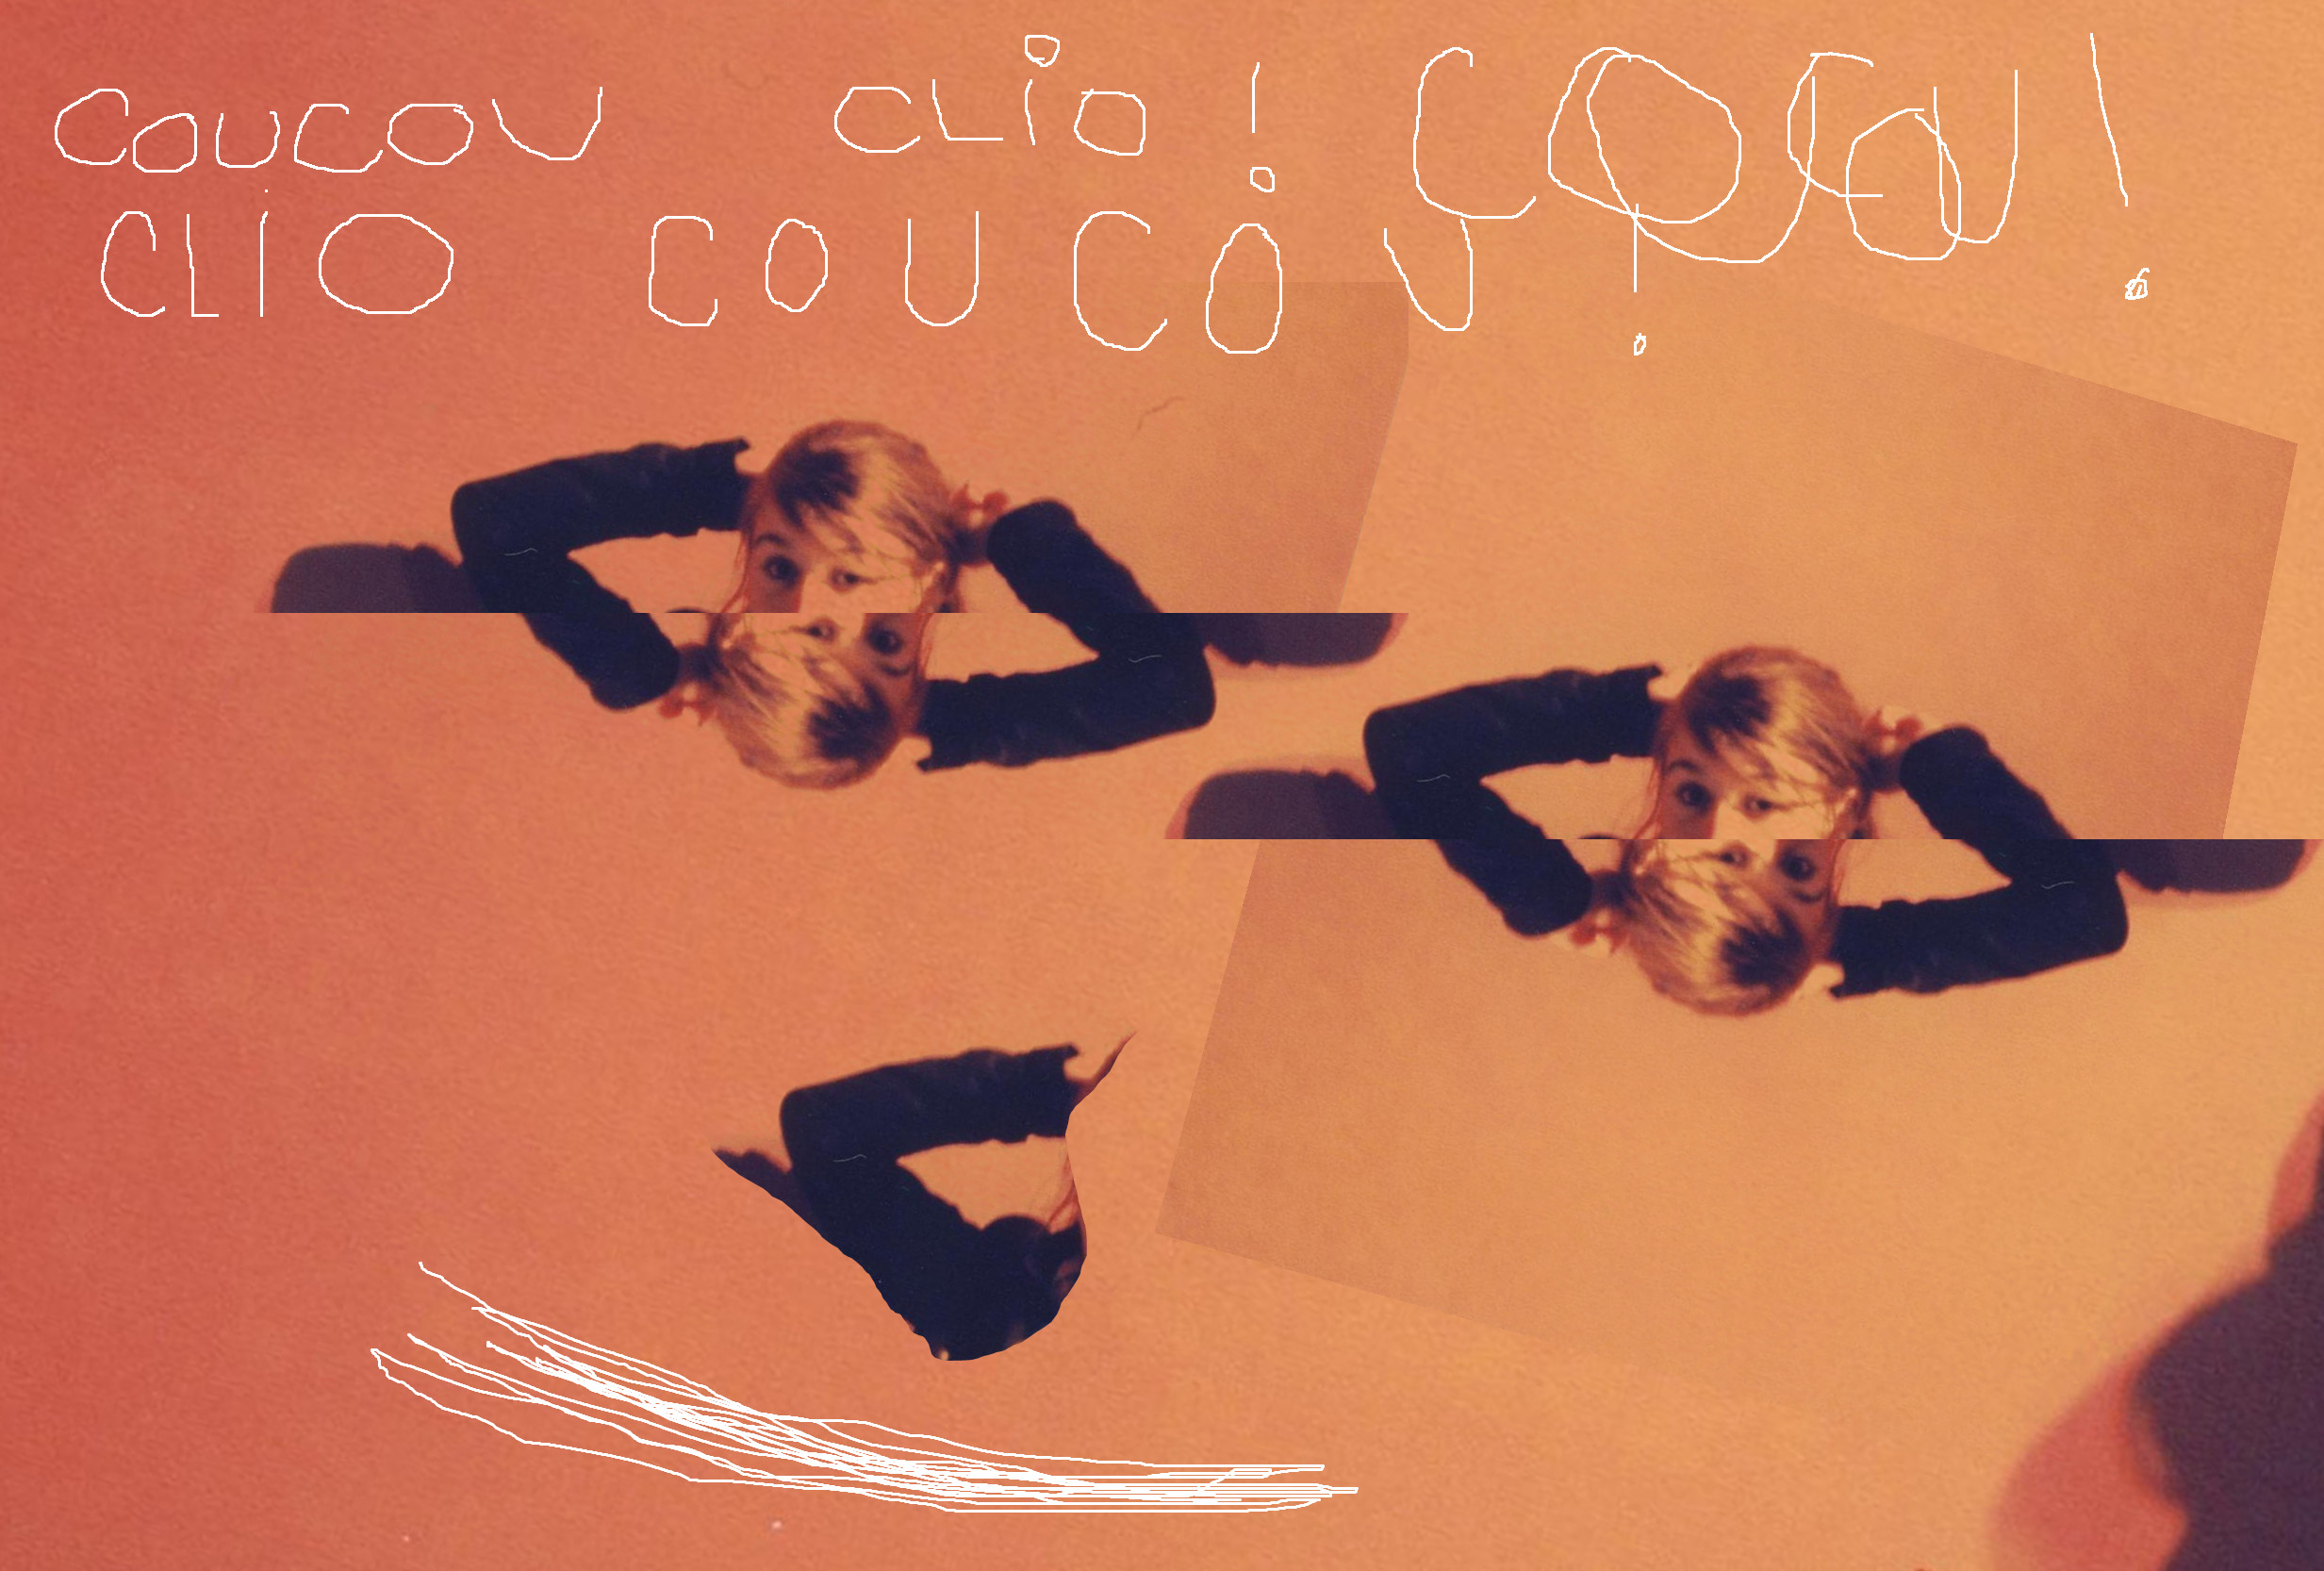 COUCOU CLiO ! COUCOU !
CLIO COUCOU !